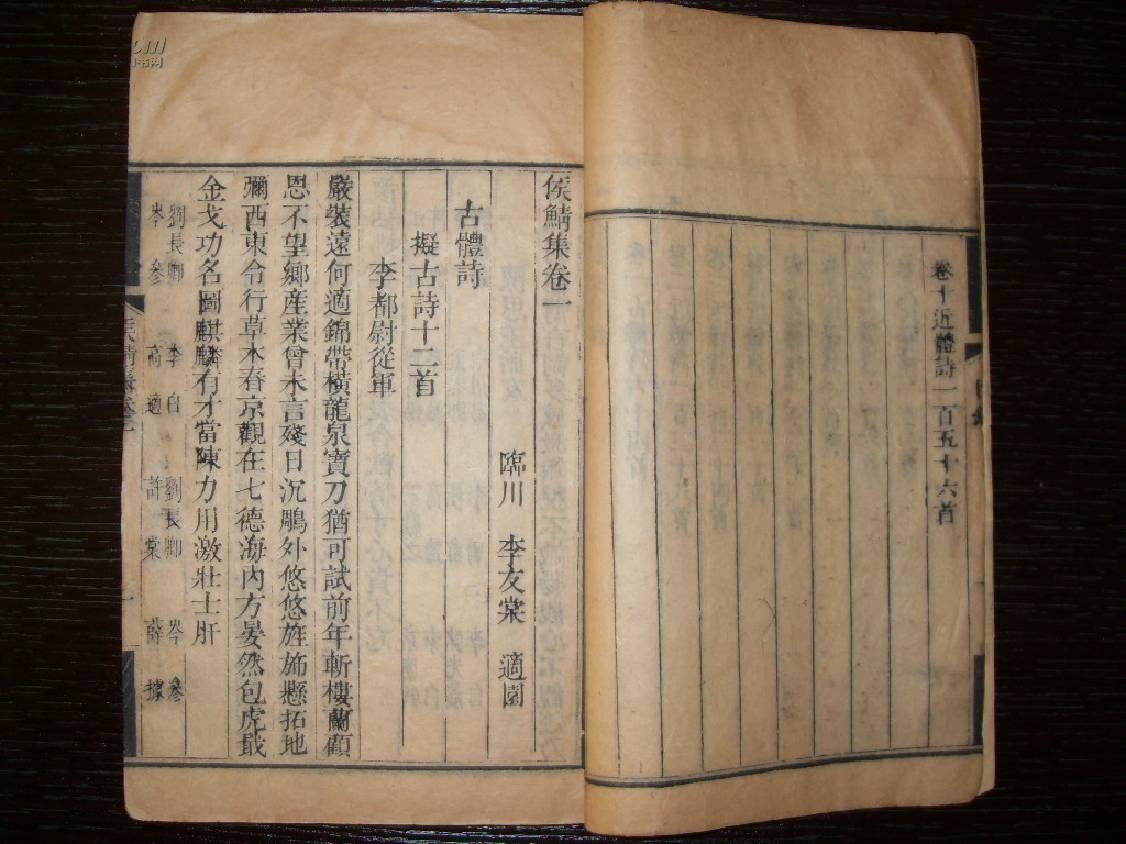 卷十近體詩一百五十六首
侯鯖集卷一
臨川 李友棠 適園
古體詩
擬古詩十二首
李都尉從軍
嚴裝遠何適錦帶橫龍泉寶刀猶可試前年斬樓蘭顧
恩不望鄉産業曾未言殘日沉鵰外悠悠旌斾懸拓地
彌西東令行草木春京觀在七德海內方晏然包虎戢
金戈功名圖麒麟有才當陳力用激壯士肝
劉長卿 李白 劉長卿 岑參
岑參 高適 許棠 薛據
侯鯖集卷一
一